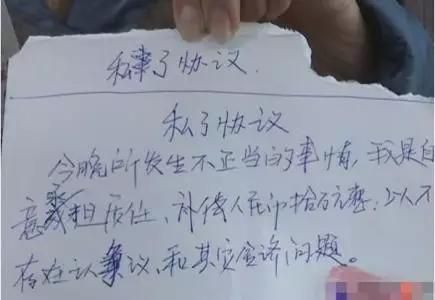 私了协议.
私了协议
今晚所发生不正当的事情,我是自
意承担责任、补偿人民币拾万元整;2人不
存在认议,和其实济问题。